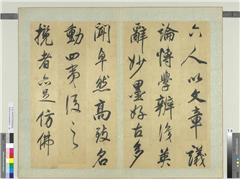 六人以文章議
論博學辨識英
辭妙墨好古多
聞卓然高致名
動四夷後之
攬者亦足仿佛